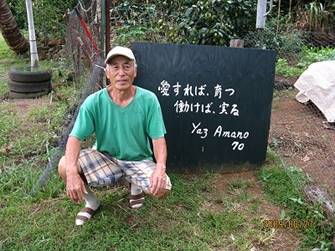 愛すれば、育つ
働けば、実る
Yaz Amano
70